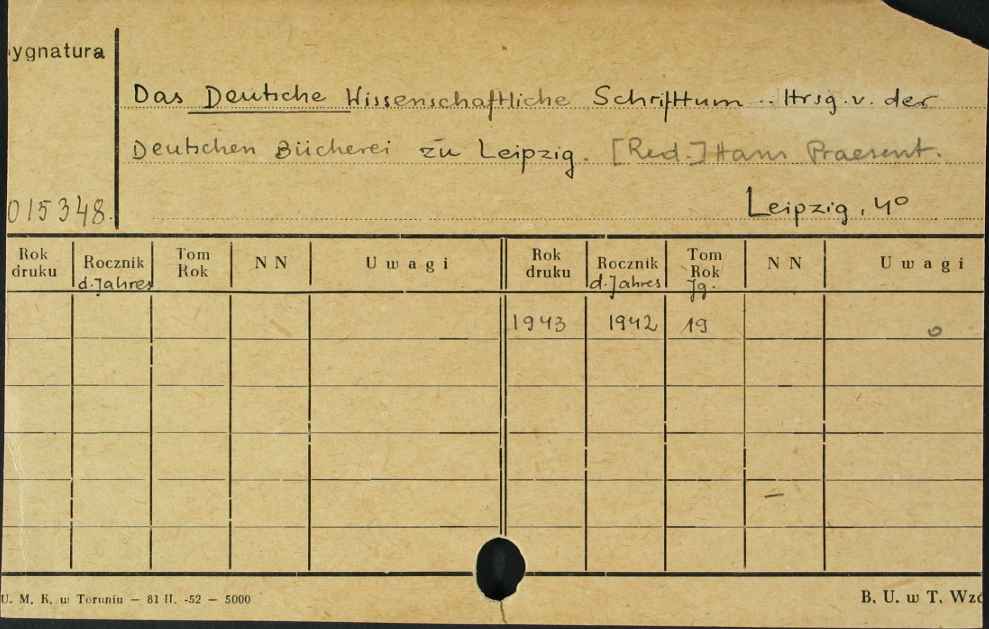 ygnatura
Das Deutsche Wissenschaftliche Schrifttum .. Hrsg. v. der
Deutschen Bücherei zu Leipzig. [Red.] Hans Praesent.
015348. Leipzig, 4°
Rok druku Rocznik d. Jahres Tom Rok NN Uwagi Rok druku Rocznik d. Jahres Tom Rok Jg. NN Uwagi
1943 1942 19 o
U. M. K. w Toruniu — 81 II. -52 — 5000 B. U. w T. Wzó